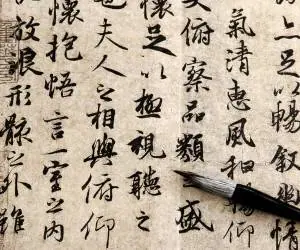 亦足以暢叙幽情
氣清惠風和暢仰
大俯察品類之盛
懷足以極視聽之
也夫人之相與俯仰
懷抱悟言一室之内
放浪形骸之外雖